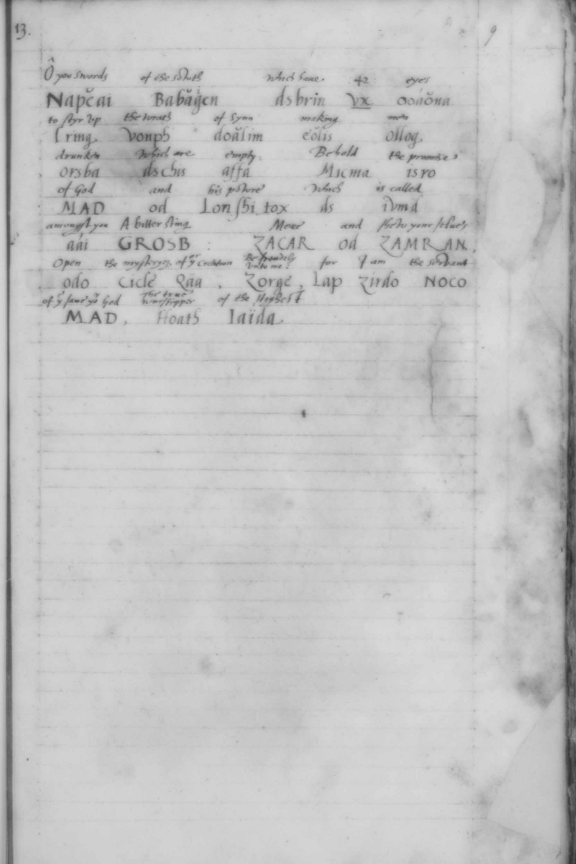 13.
9
Ô you swords of the south which have 42 eyes
Napēai Babāgen ds brin vx ooáōna
to styr up the wrath of Synn making men
lring vonph doālim eōlis ollog
drunken which are empty. Behold the promise
orsba ds chis affa Micma isro
of God and his powre which is called
MAD od Lonshi tox ds ivmd
amongst you A bitter sting Move and shew your selves
aai GROSB : ZACAR od ZAMRAN,
Open the mysteryes of yr Creation Be friendely unto me: for I am the servant
odo cicle Qaa, Zorge, lap zirdo NOCO
of ye same yr God the true worshipper of the Highest
MAD, Hoath Iaïda.